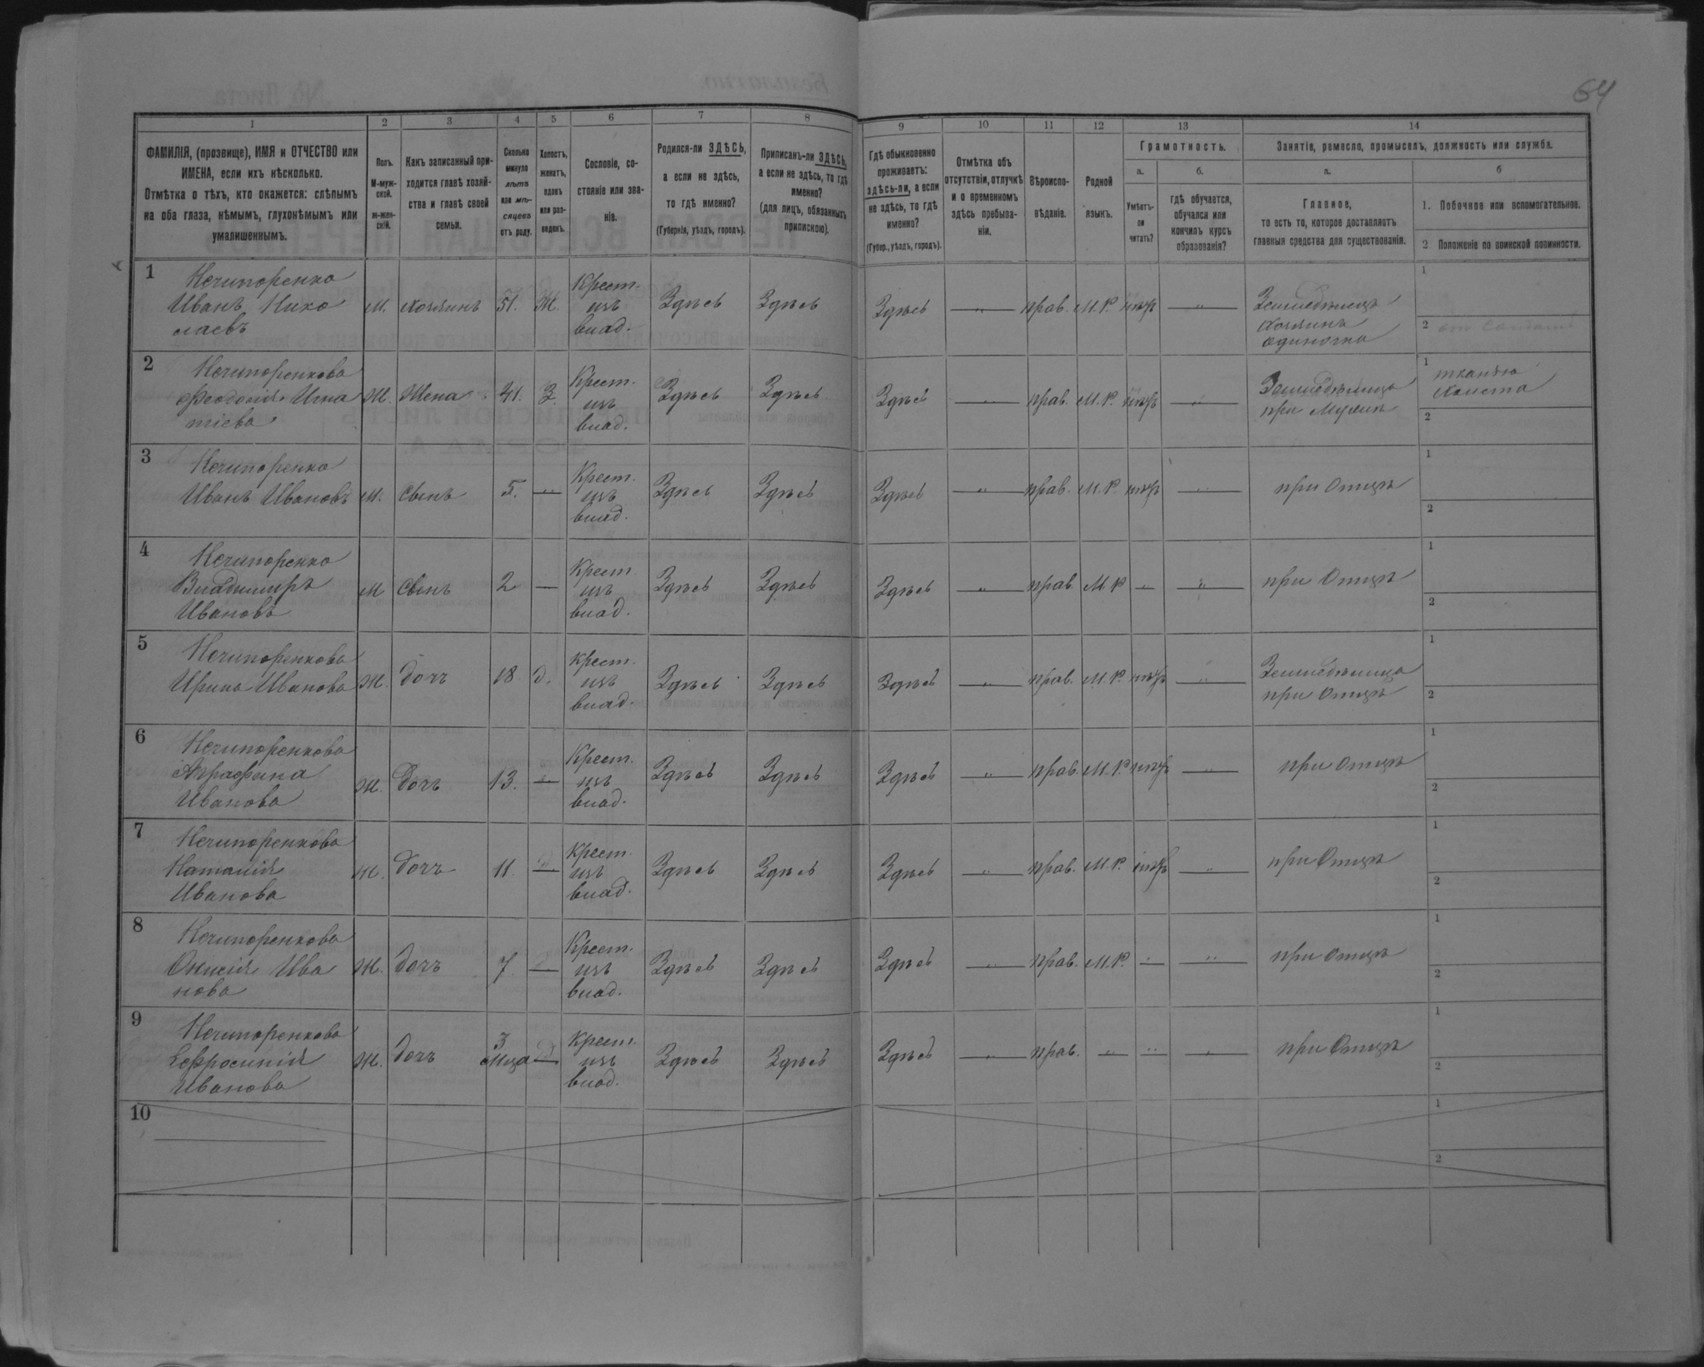 64
1
2
3
4
5
6
7
8
9
10
11
12
13
14
ФАМИЛІЯ, (прозвище), ИМЯ и ОТЧЕСТВО или
ИМЕНА, если ихъ нѣсколько.
Отмѣтка о тѣхъ, кто окажется: слѣпымъ
на оба глаза, нѣмымъ, глухонѣмымъ или
умалишеннымъ.
Полъ.
М-муж-
ской.
ж-жен-
скій.
Какъ записанный при-
ходится главѣ хозяй-
ства и главѣ своей
семьи.
Сколько
минуло
лѣтъ
или мѣ-
сяцевъ
отъ роду.
Холостъ,
женатъ,
вдовъ
или раз-
веденъ.
Сословіе, со-
стояніе или зва-
ніе.
Родился-ли ЗДѢСЬ,
а если не здѣсь,
то гдѣ именно?
(Губернія, уѣздъ, городъ).
Приписанъ-ли ЗДѢСЬ,
а если не здѣсь, то гдѣ
именно?
(для лицъ, обязанныхъ
припискою).
Гдѣ обыкновенно
проживаетъ:
здѣсь-ли, а если
не здѣсь, то гдѣ
именно?
(Губер., уѣздъ, городъ).
Отмѣтка объ
отсутствіи, отлучкѣ
и о временномъ
здѣсь пребыва-
ніи.
Вѣроиспо-
вѣданіе.
Родной
языкъ.
Грамотность.
а.
Умѣетъ-
ли
читать?
б.
гдѣ обучается,
обучался или
кончилъ курсъ
образованія?
Занятіе, ремесло, промыселъ, должность или служба.
а.
Главное,
то есть то, которое доставляетъ
главныя средства для существованія.
б
1. Побочное или вспомогательное.
2. Положеніе по воинской повинности.
1
Нечипоренко
Иванъ Нико
лаевъ
М. хозяинъ 51. Ж. Крест.
изъ
влад.
Здѣсь Здѣсь Здѣсь — „ — прав. М.Р. нѣтъ — „ —
Земледѣлецъ
хозяинъ
одиночка
1
2
2
Нечипоренкова
Феодосія Игна
тіева
Ж. Жена 41. З. Крест.
изъ
влад.
Здѣсь Здѣсь Здѣсь — „ — прав. М.Р. нѣтъ — „ —
Земледѣлица
при Мужѣ
1 тканье
холста
2
3
Нечипоренко
Иванъ Ивановъ
М. Сынъ 5. — Крест.
изъ
влад.
Здѣсь Здѣсь Здѣсь — „ — прав. М.Р. нѣтъ — „ —
при Отцѣ
1
2
4
Нечипоренко
Владимиръ
Ивановъ
М Сынъ 2 — Крест.
изъ
влад.
Здѣсь Здѣсь Здѣсь — „ — прав. М.Р. — — „ —
при Отцѣ
1
2
5
Нечипоренкова
Ирина Иванова
Ж. дочь 18 д. Крест.
изъ
влад.
Здѣсь Здѣсь Здѣсь — „ — прав. М.Р. нѣтъ — „ —
Земледѣлица
при Отцѣ
1
2
6
Нечипоренкова
Аграфина
Иванова
Ж. Дочь 13. — Крест.
изъ
влад.
Здѣсь Здѣсь Здѣсь — „ — прав. М.Р. нѣтъ — „ —
при Отцѣ
1
2
7
Нечипоренкова
Наталія
Иванова
Ж. дочь 11 — Крест.
изъ
влад.
Здѣсь Здѣсь Здѣсь — „ — прав. М.Р. нѣтъ — „ —
при Отцѣ
1
2
8
Нечипоренкова
Онисія Ива
нова
Ж. Дочь 7 — Крест.
изъ
влад.
Здѣсь Здѣсь Здѣсь — „ — прав. М.Р. — — „ —
при Отцѣ
1
2
9
Нечипоренкова
Евфросинія
Иванова
Ж. Дочь 3
м-ца — Крест.
изъ
влад.
Здѣсь Здѣсь Здѣсь — „ — прав. — „ — — „ — — „ —
при Отцѣ
1
2
10
1
2